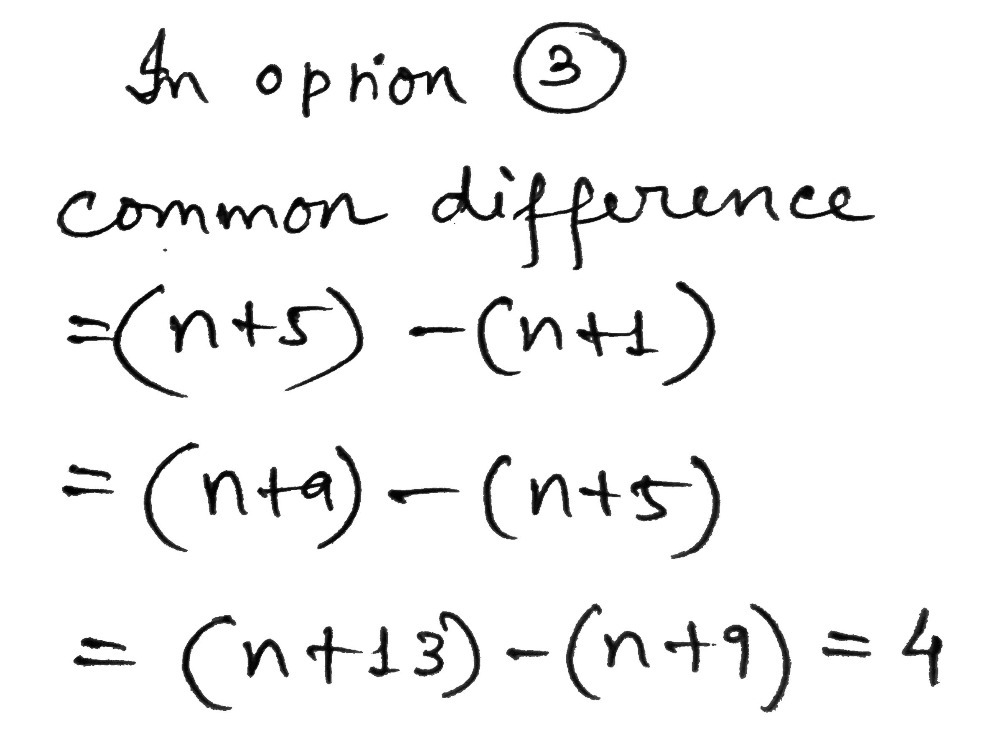 In option 3
common difference
=(n+5) -(n+1)
= (n+9) - (n+5)
= (n+13) -(n+9) = 4